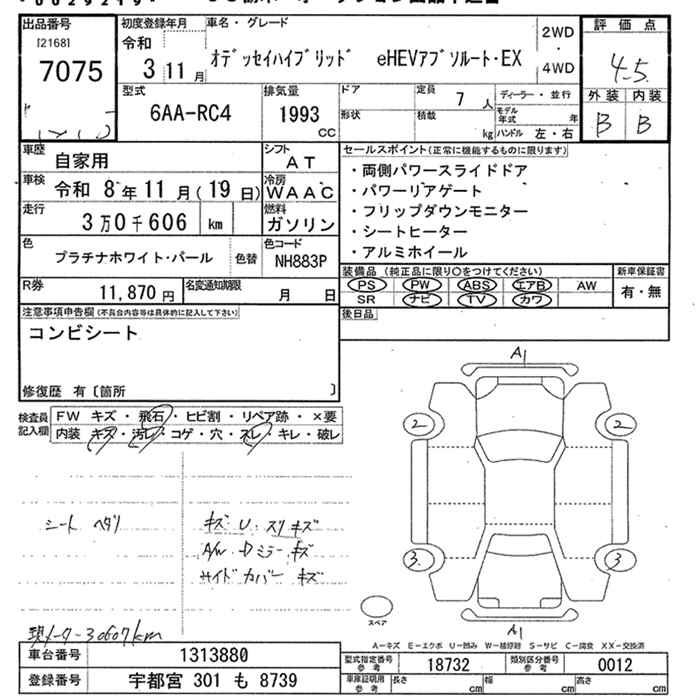 出品番号
[2168]
7075
初度登録年月
令和
3 11 月
車名・グレード
ｵﾃﾞｯｾｲﾊｲﾌﾞﾘｯﾄﾞ eHEVｱﾌﾞｿﾙｰﾄ･EX
2WD
・
4WD
評価点
4.5
外装 内装
B B
型式
6AA-RC4
排気量
1993
cc
ドア
定員
7 人
ディーラー・並行
形状
積載
kg
モデル年式 年
ハンドル 左・右
車歴
自家用
シフト
AT
車検
令和 8年 11月(19日)
冷房
WAAC
走行
3万0千606 km
燃料
ガソリン
色
プラチナホワイト・パール
色替
色コード
NH883P
R券
11,870 円
名変通知期限
月 日
セールスポイント(正常に機能するものに限ります)
・両側パワースライドドア
・パワーリアゲート
・フリップダウンモニター
・シートヒーター
・アルミホイール
装備品(純正品に限り○をつけてください)
新車保証書
PS PW ABS エアB AW
SR ナビ TV カワ
有・無
後日品
注意事項申告欄(不具合内容等は具体的に記入して下さい)
コンビシート
修復歴 有〔箇所 〕
検査員
記入欄
FW キズ・飛石・ヒビ割・リペア跡・×要
内装 キズ・汚レ・コゲ・穴・スレ・キレ・破レ
シート ヘタリ
キズ U. スリキズ
A/W Dミラー キズ
サイドカバー キズ
現メーター30607km
A1
2 2
3. 3
スペア
A1
A－キズ E－エクボ U－凹み W－補修跡 S－サビ C－腐食 XX－交換済
車台番号
1313880
型式指定番号
参考
18732
類別区分番号
参考
0012
登録番号
宇都宮 301 も 8739
車庫証明用
参考
長さ cm
幅 cm
高さ cm